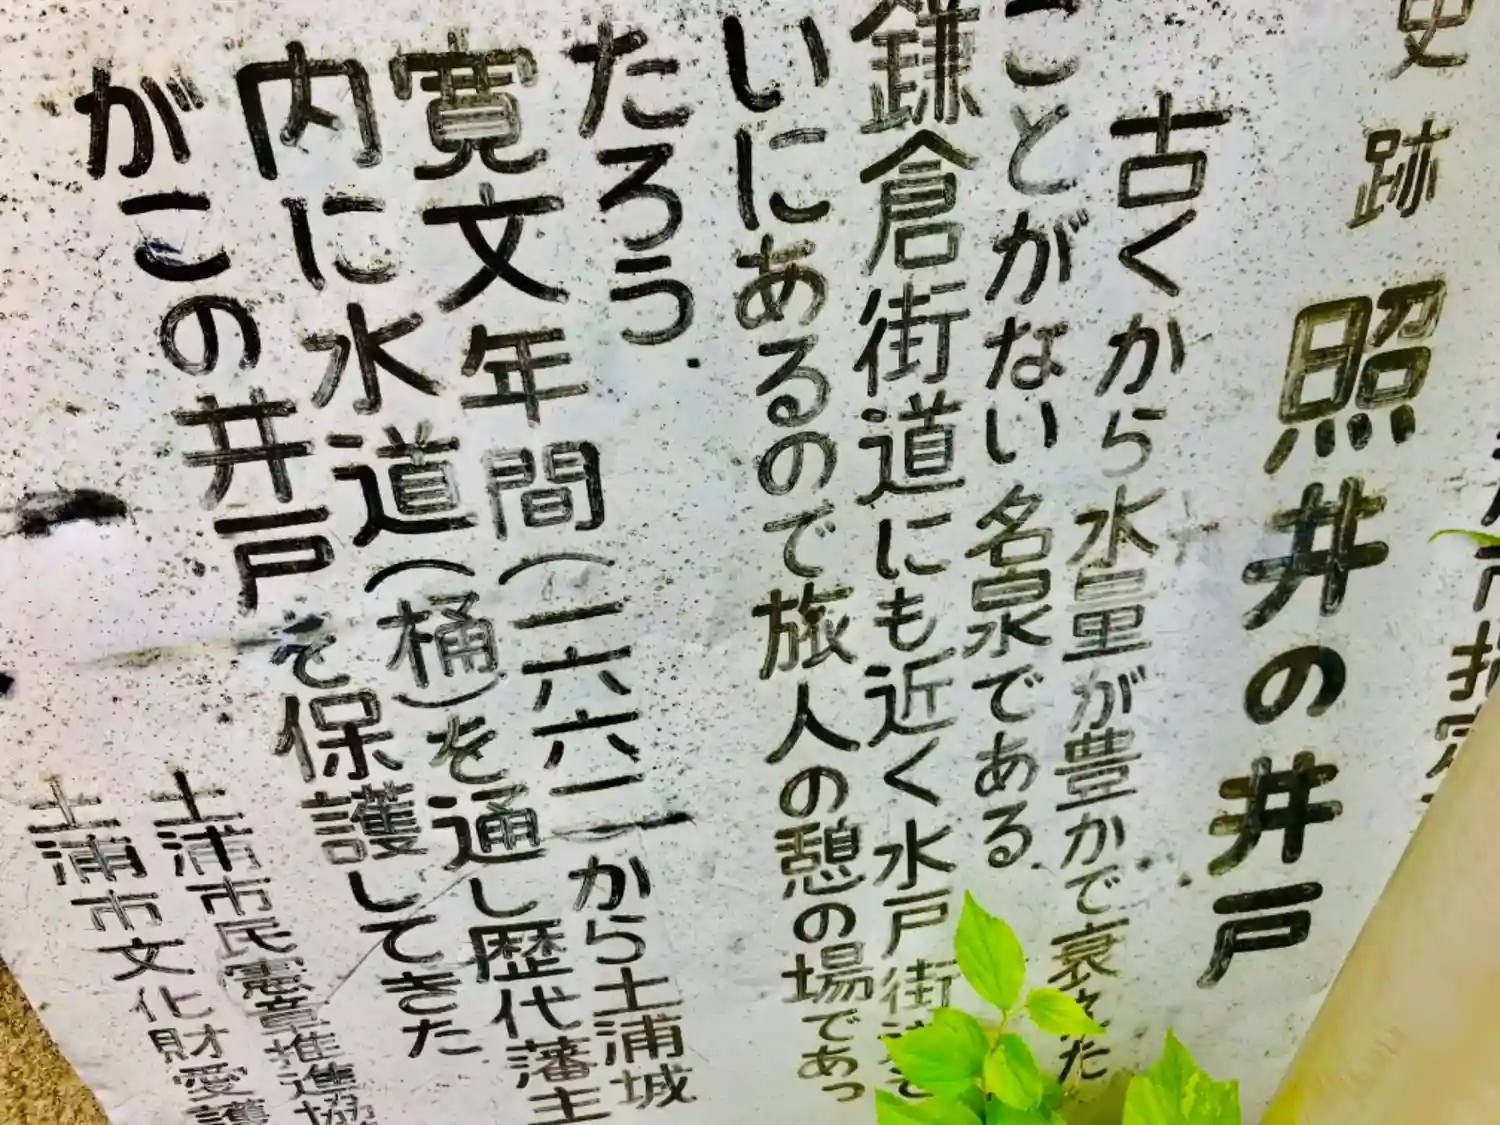 市指定
史跡 照井の井戸
古くから水量が豊かで衰えた
ことがない名泉である.
鎌倉街道にも近く水戸街道
いにあるので旅人の憩の場であっ
たろう.
寛文年間(一六六一から土浦城
内に水道(桶)を通し歴代藩主
がこの井戸を保護してきた
土浦市民憲章推進協
土浦市文化財愛護